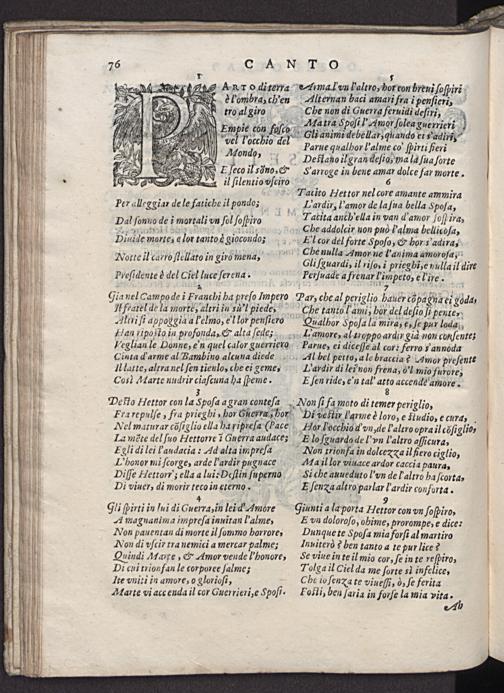 76
CANTO
1
PARTO di terra
è l'ombra, ch'en
tro al giro
Empie con fosco
vel l'occhio del
Mondo,
E seco il sõno, &
il silentio vsciro
Per alleggiar de le fatiche il pondo;
Dal sonno de i mortali vn sol sospiro
Diuide morte, e lor tanto è giocondo;
Notte il carro stellato in giro mena,
Presidente è del Ciel luce serena.
2
Gia nel Campo de i Franchi ha preso Impero
Il fratel de la morte, altri in sù'l piede,
Altri si appoggia a l'elmo, e'l lor pensiero
Han riposto in profonda, & alta sede;
Veglian le Donne, e'n quel calor guerriero
Cinta d'arme al Bambino alcuna diede
Il latte, altra nel sen tienlo, che ei geme,
Così Marte nudrir ciascuna ha speme.
3
Desto Hettor con la Sposa a gran contesa
Fra repulse, fra prieghi, hor Guerra, hor
Nel maturar cõsiglio ella ha ripresa (Pace
La mẽte del suo Hettorre ĩ Guerra audace;
Egli di lei l'audacia: Ad alta impresa
L'honor mi scorge, arde l'ardir pugnace
Disse Hettorr; ella a lui: Destin superno
Di viuer, di morir teco in eterno.
4
Gli spirti in lui di Guerra, in lei d'Amore
A magnanima impresa inuitan l'alme,
Non pauentan di morte il sommo horrore,
Non di vscir tra nemici a mercar palme;
Quindi Marte, & Amor vende l'honore,
Di cui trionfan le corporee salme;
Ite vniti in amore, o gloriosi,
Marte vi accenda il cor Guerrieri, e Sposi.
5
Arma l'vn l'altro, hor con breui sospiri
Alternan baci amari fra i pensieri,
Che non di Guerra feruidi desiri,
Ma tra Sposi l'Amor solea guerrieri
Gli animi debellar, quando ei s'adiri,
Parue qualhor l'alme co' spirti fieri
Destano il gran desio, ma la sua sorte
S'arroge in bene amar dolce far morte.
6
Tacito Hettor nel core amante ammira
L'ardir, l'amor de la sua bella Sposa,
Tacita anch'ella in van d'amor sospira,
Che addolcir non può l'alma bellicosa,
E'l cor del forte Sposo, & hor s'adira,
Che nulla Amor ne l'anima amorosa,
Gli sguardi, il riso, i prieghi, e nulla il dire
Persuade a frenar l'impeto, e l'ire.
7
Par, che al periglio hauer cõpagna ei goda,
Che tanto l'ami, hor del desio si pente,
Qualhor Sposa la mira, e, se pur loda
L'amore, al troppo ardir già non consente;
Parue, ei dicesse al cor: ferro s'annoda
Al bel petto, a le braccia? Amor presente
L'ardir di lei non frena, ò'l mio furore,
E sen ride, e'n tal' atto accende amore.
8
Non si fa moto di temer periglio,
Di vestir l'arme è loro, e studio, e cura,
Hor l'occhio d'vn, de l'altro opra il cõsiglio,
E lo sguardo de l'vn l'altro assicura,
Non trionfa in dolcezza il fiero ciglio,
Ma il lor viuace ardor caccia paura,
Si che auueduto l'vn de l'altro ha scorta,
E senza altro parlar l'ardir conforta.
9
Giunti a la porta Hettor con vn sospiro,
E vn doloroso, ohime, prorompe, e dice:
Dunque te Sposa mia forsi al martiro
Inuiterò? ben tanto a te pur lice?
Se viue in te il mio cor, se in te respiro,
Tolga il Ciel da me sorte sì infelice,
Che io senza te viuessi, ò, se ferita
Fosti, ben saria in forse la mia vita.
Ah